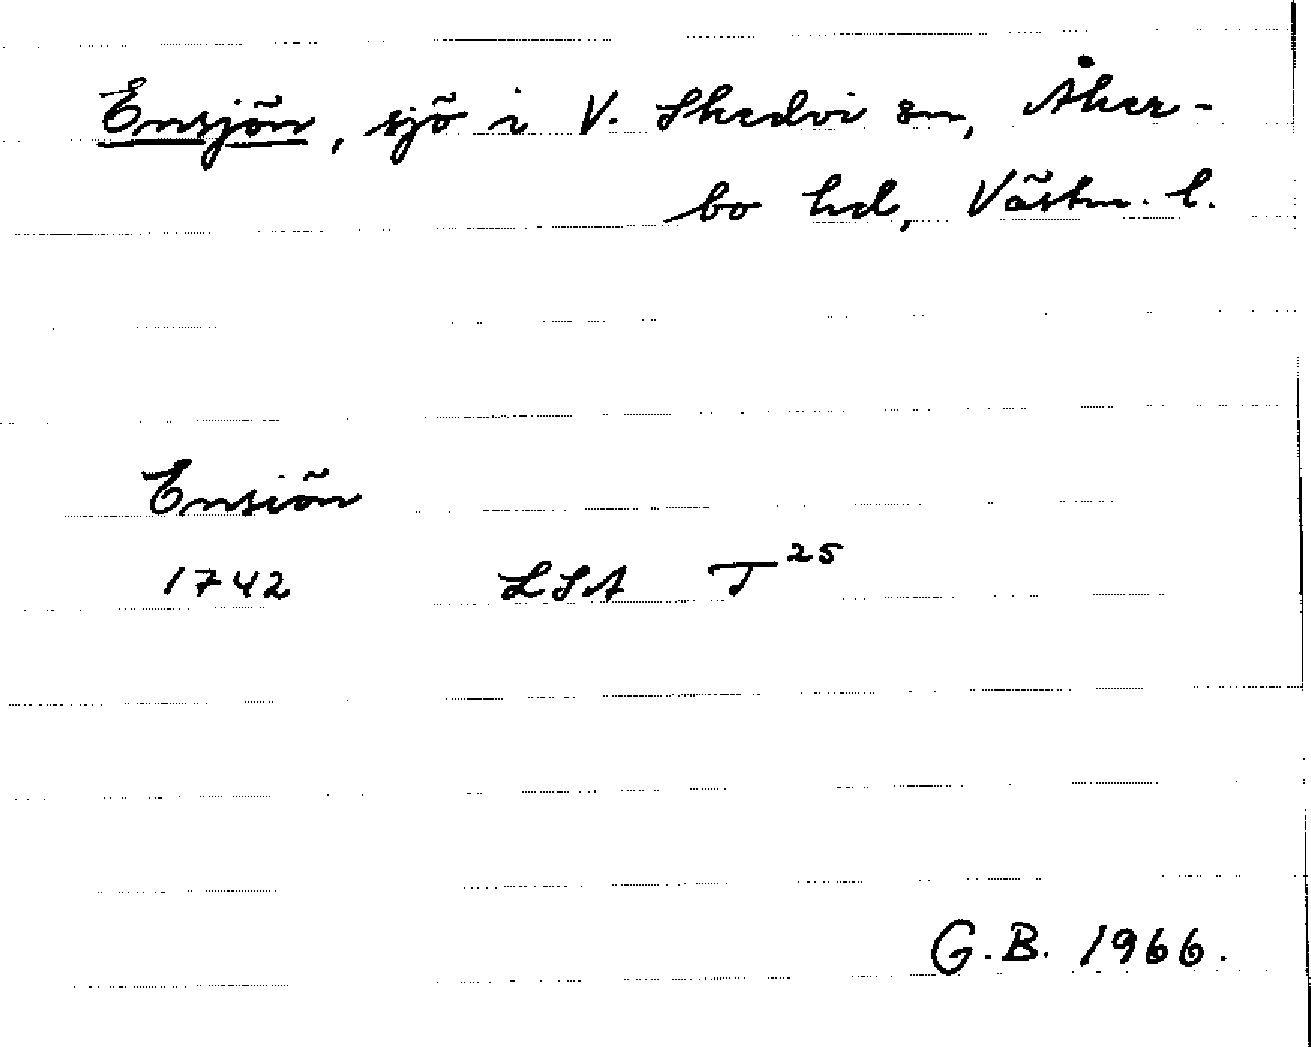 Ensjön, sjö i V. Skedvi sn, Åker-
bo hd, Västm. l.
Ensiön
1742 LSA T²⁵
G.B. 1966.